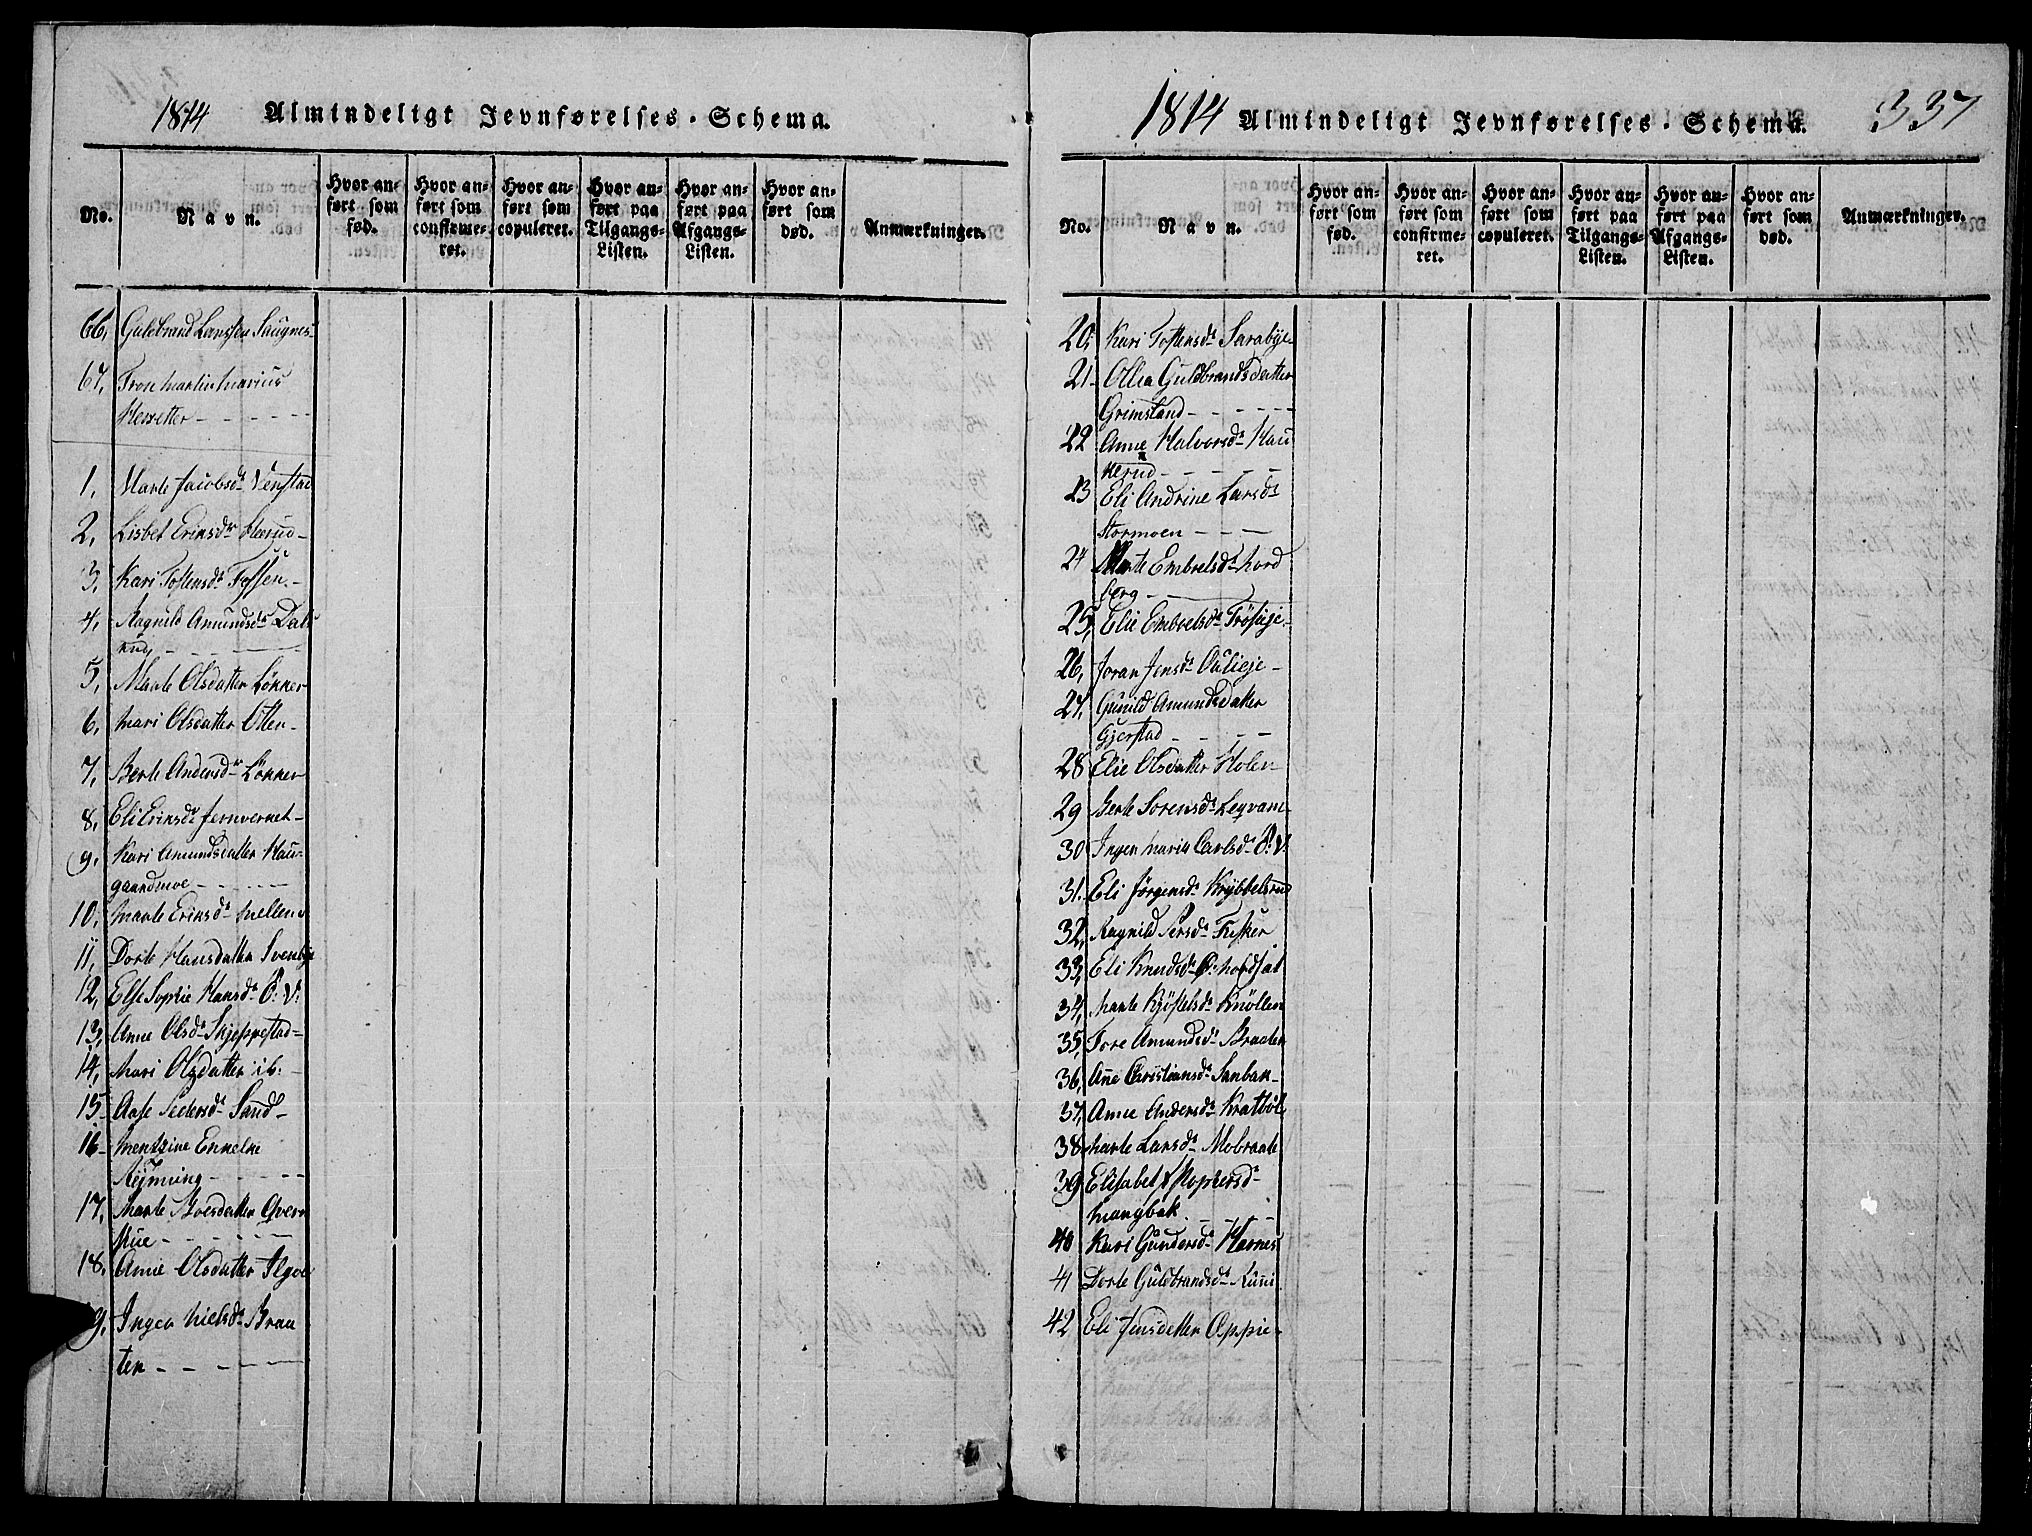 1814 Almindeligt Jevnførelses-Schema.
No.
Navn.
Hvor an-
ført som
fød.
Hvor an-
ført som
confirme-
ret.
Hvor an-
ført som
copuleret.
Hvor an-
ført paa
Tilgangs-
Listen.
Hvor an-
ført paa
Afgangs-
Listen.
Hvor an-
ført som
død.
Anmærkninger.
66, Guldbrand Larssen Saugnes
67, Tron Martin Marius
- - - -
1, Marte Jacobsdr Venstad
2, Lisbet Eriksdr
3, Kari Tostensdr Fossen
4, Ragnild Amundsdr Dal
5, Marte Olsdatter Løkker
6, Mari Olsdatter Otter
7, Berte Andersdr Løkker
8, Eli Eriksdr Jernverket
9, Kari Amundsdatter Hau-
gaardmoe - - -
10, Marte Eriksdr Mellem
11, Dorte Hansdatter Svenbye
12, Else Sophie Hansdr O: V:
13, Anne Olsdr Skjeppestad
14, Mari Olsdatter ib:
15 Aase Pedersdr Sand
16 Mentzine Enkelke
- - - -
17, Marte Moesdatter Qvern
hue - - - -
18, Anne Olsdatter
19, Inger Nielsdr Braa
ten - - - -
1814 Almindeligt Jevnførelses-Schema. 337
No.
Navn.
Hvor an-
ført som
fød.
Hvor an-
ført som
confirme-
ret.
Hvor an-
ført som
copuleret.
Hvor an-
ført paa
Tilgangs-
Listen.
Hvor an-
ført paa
Afgangs-
Listen.
Hvor an-
ført som
død.
Anmærkninger.
20, Kari Tostensdr Sarabye
21 Ollia Guldbrandsdatter
Grimsland - - - -
22 Anne Halvorsdr Hau
kerud - - - -
23 Eli Andrine Larsdr
Stormoen - - -
24 Marte Embretsdr Nord
berg - -
25, Elie Embretsdr Frøsage
26, Joran Jensdr Oulieje
27, Gunild Amundsdatter
Gjerstad - - - -
28 Elie Olsdatter Holen
29 Berte Sorensdr Leqvam
30 Inger Maria Carlsdr O: V:
31. Eli Jørgensdr Krybbelsrud
32, Ragnild Persdr Fisker
33, Eli Knudsdr O: Nordset
34, Marte Kjøstelsdr Knøllen
35, Tore Amundsdr Braaten
36, Ane Christiansdr Sanbak
37, Anne Andersdr Kratbøl
38 Marte Larsdr Mobraate
39 Elisabet
Mangbak - - -
40 Kari Gundersdr Hernes
41 Dorte Guldbrandsdr
42 Eli Jensdatter Oppie